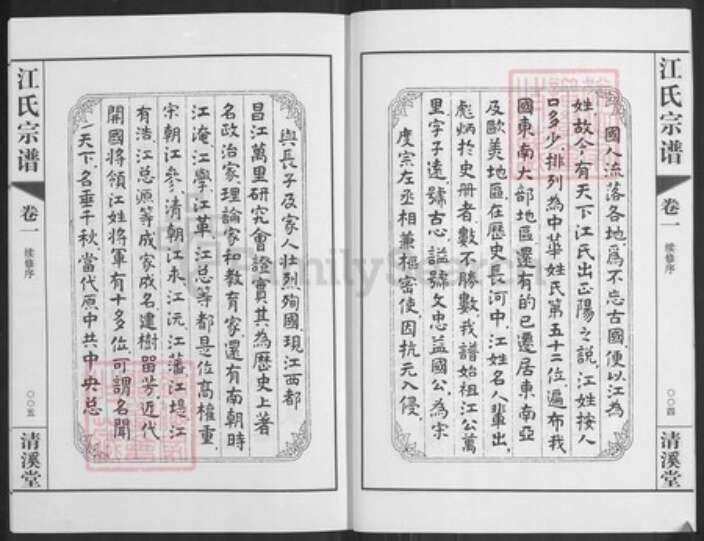 江氏宗谱
卷一
续修序
〇〇四
清溪堂
國人流落各地,為不忘古國,便以江為
姓,故今有天下江氏出正陽之說,江姓按人
口多少,排列為中華姓氏第五十二位,遍布我
國東南大部地區,還有的已遷居東南亞
及歐美地區,在歷史長河中,江姓名人輩出,
彪炳於史册者,數不勝數,我譜始祖江公萬
里,字子遠,號古心,謚號文忠益國公,為宋
度宗左丞相兼樞密使,因抗元入侵,
與長子及家人壯烈殉國,現江西都
昌江萬里研究會證實其為歷史上著
名政治家,理論家和教育家,還有南朝時
江淹,江學,江革,江总等都是位高權重,
宋朝江參,清朝江永,江沅,江藩,江堤,江
有浩,江总源等成家成名,建樹留芳,近代
開國將領江姓將軍有十多位,可謂名聞
天下,名垂千秋,當代原中共中央总
江氏宗谱
卷一
续修序
〇〇五
清溪堂
FamilySearch